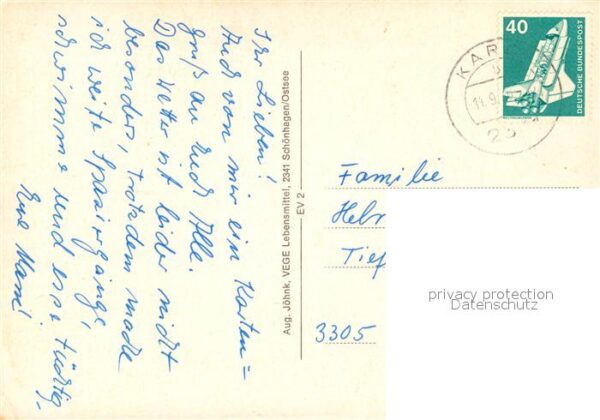 Ihr Lieben!
Auch von mir ein Karten-
gruß an Euch Alle.
Das Wetter ist leider nicht
besonder, trotzdem mache
ich weite Spaziergänge,
schwimme und esse tüchtig,
Eure Mami!
Aug. Jöhnk, VEGE Lebensmittel, 2341 Schönhagen/Ostsee
EV 2
40
DEUTSCHE BUNDESPOST
KAR
23
Familie
Hebr
Tief
3305
privacy protection
Datenschutz